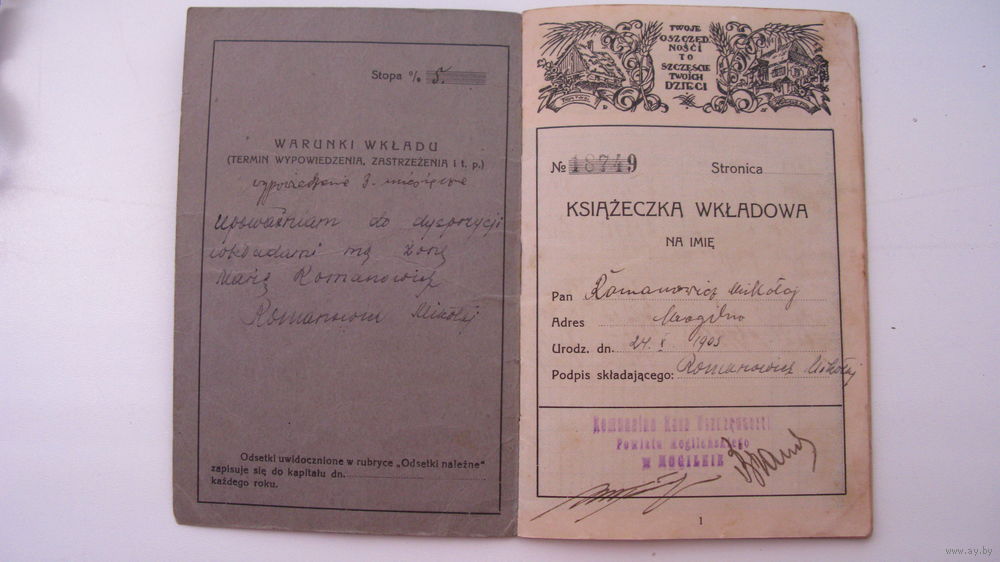 Stopa % 5.
WARUNKI WKŁADU
(TERMIN WYPOWIEDZENIA, ZASTRZEŻENIA i t. p.)
wypowiedzenie 3. miesięczne
Upoważniam do dyspozycji
wkładami mą żonę
Marię Romanowicz
Romanowicz Mikołaj
Odsetki uwidocznione w rubryce „Odsetki należne"
zapisuje się do kapitału dn.
każdego roku.
TWOJE
OSZCZĘD
NOŚCI
TO
SZCZĘŚCIE
TWOICH
DZIECI
№ 18749 Stronica
KSIĄŻECZKA WKŁADOWA
NA IMIĘ
Pan Romanowicz Mikołaj
Adres Mogilno
Urodz. dn. 24. X 1905
Podpis składającego: Romanowicz Mikołaj
Komunalna Kasa Oszczędności
Powiatu Mogileńskiego
w MOGILNIE
1
www.ay.by